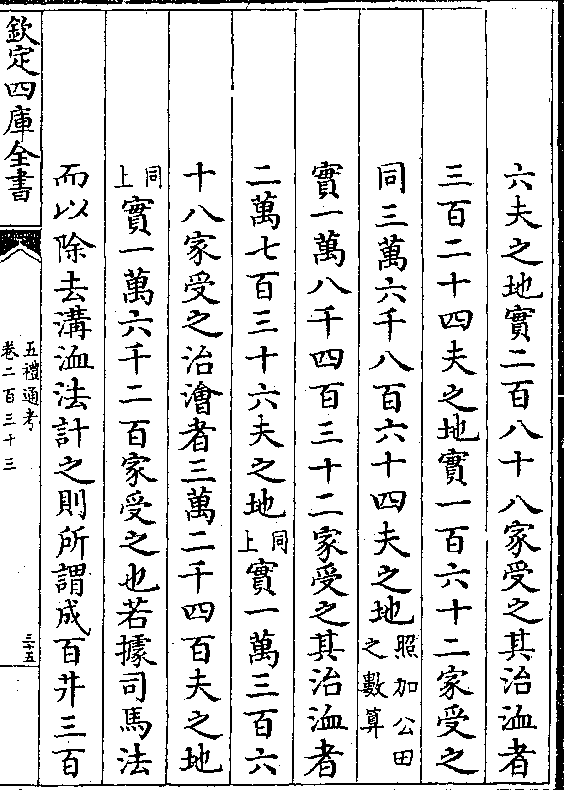 六夫之地實二百八十八家受之其治洫者
三百二十四夫之地實一百六十二家受之
同三萬六千八百六十四夫之地照加公田之數算
實一萬八千四百三十二家受之其治洫者
二萬七百三十六夫之地同上實一萬三百六
十八家受之治澮者三萬二千四百夫之地
同上實一萬六千二百家受之也若據司馬法
而以除去溝洫法計之則所謂成百井三百
欽定四庫全書
五禮通考
卷二百三十三
三十五